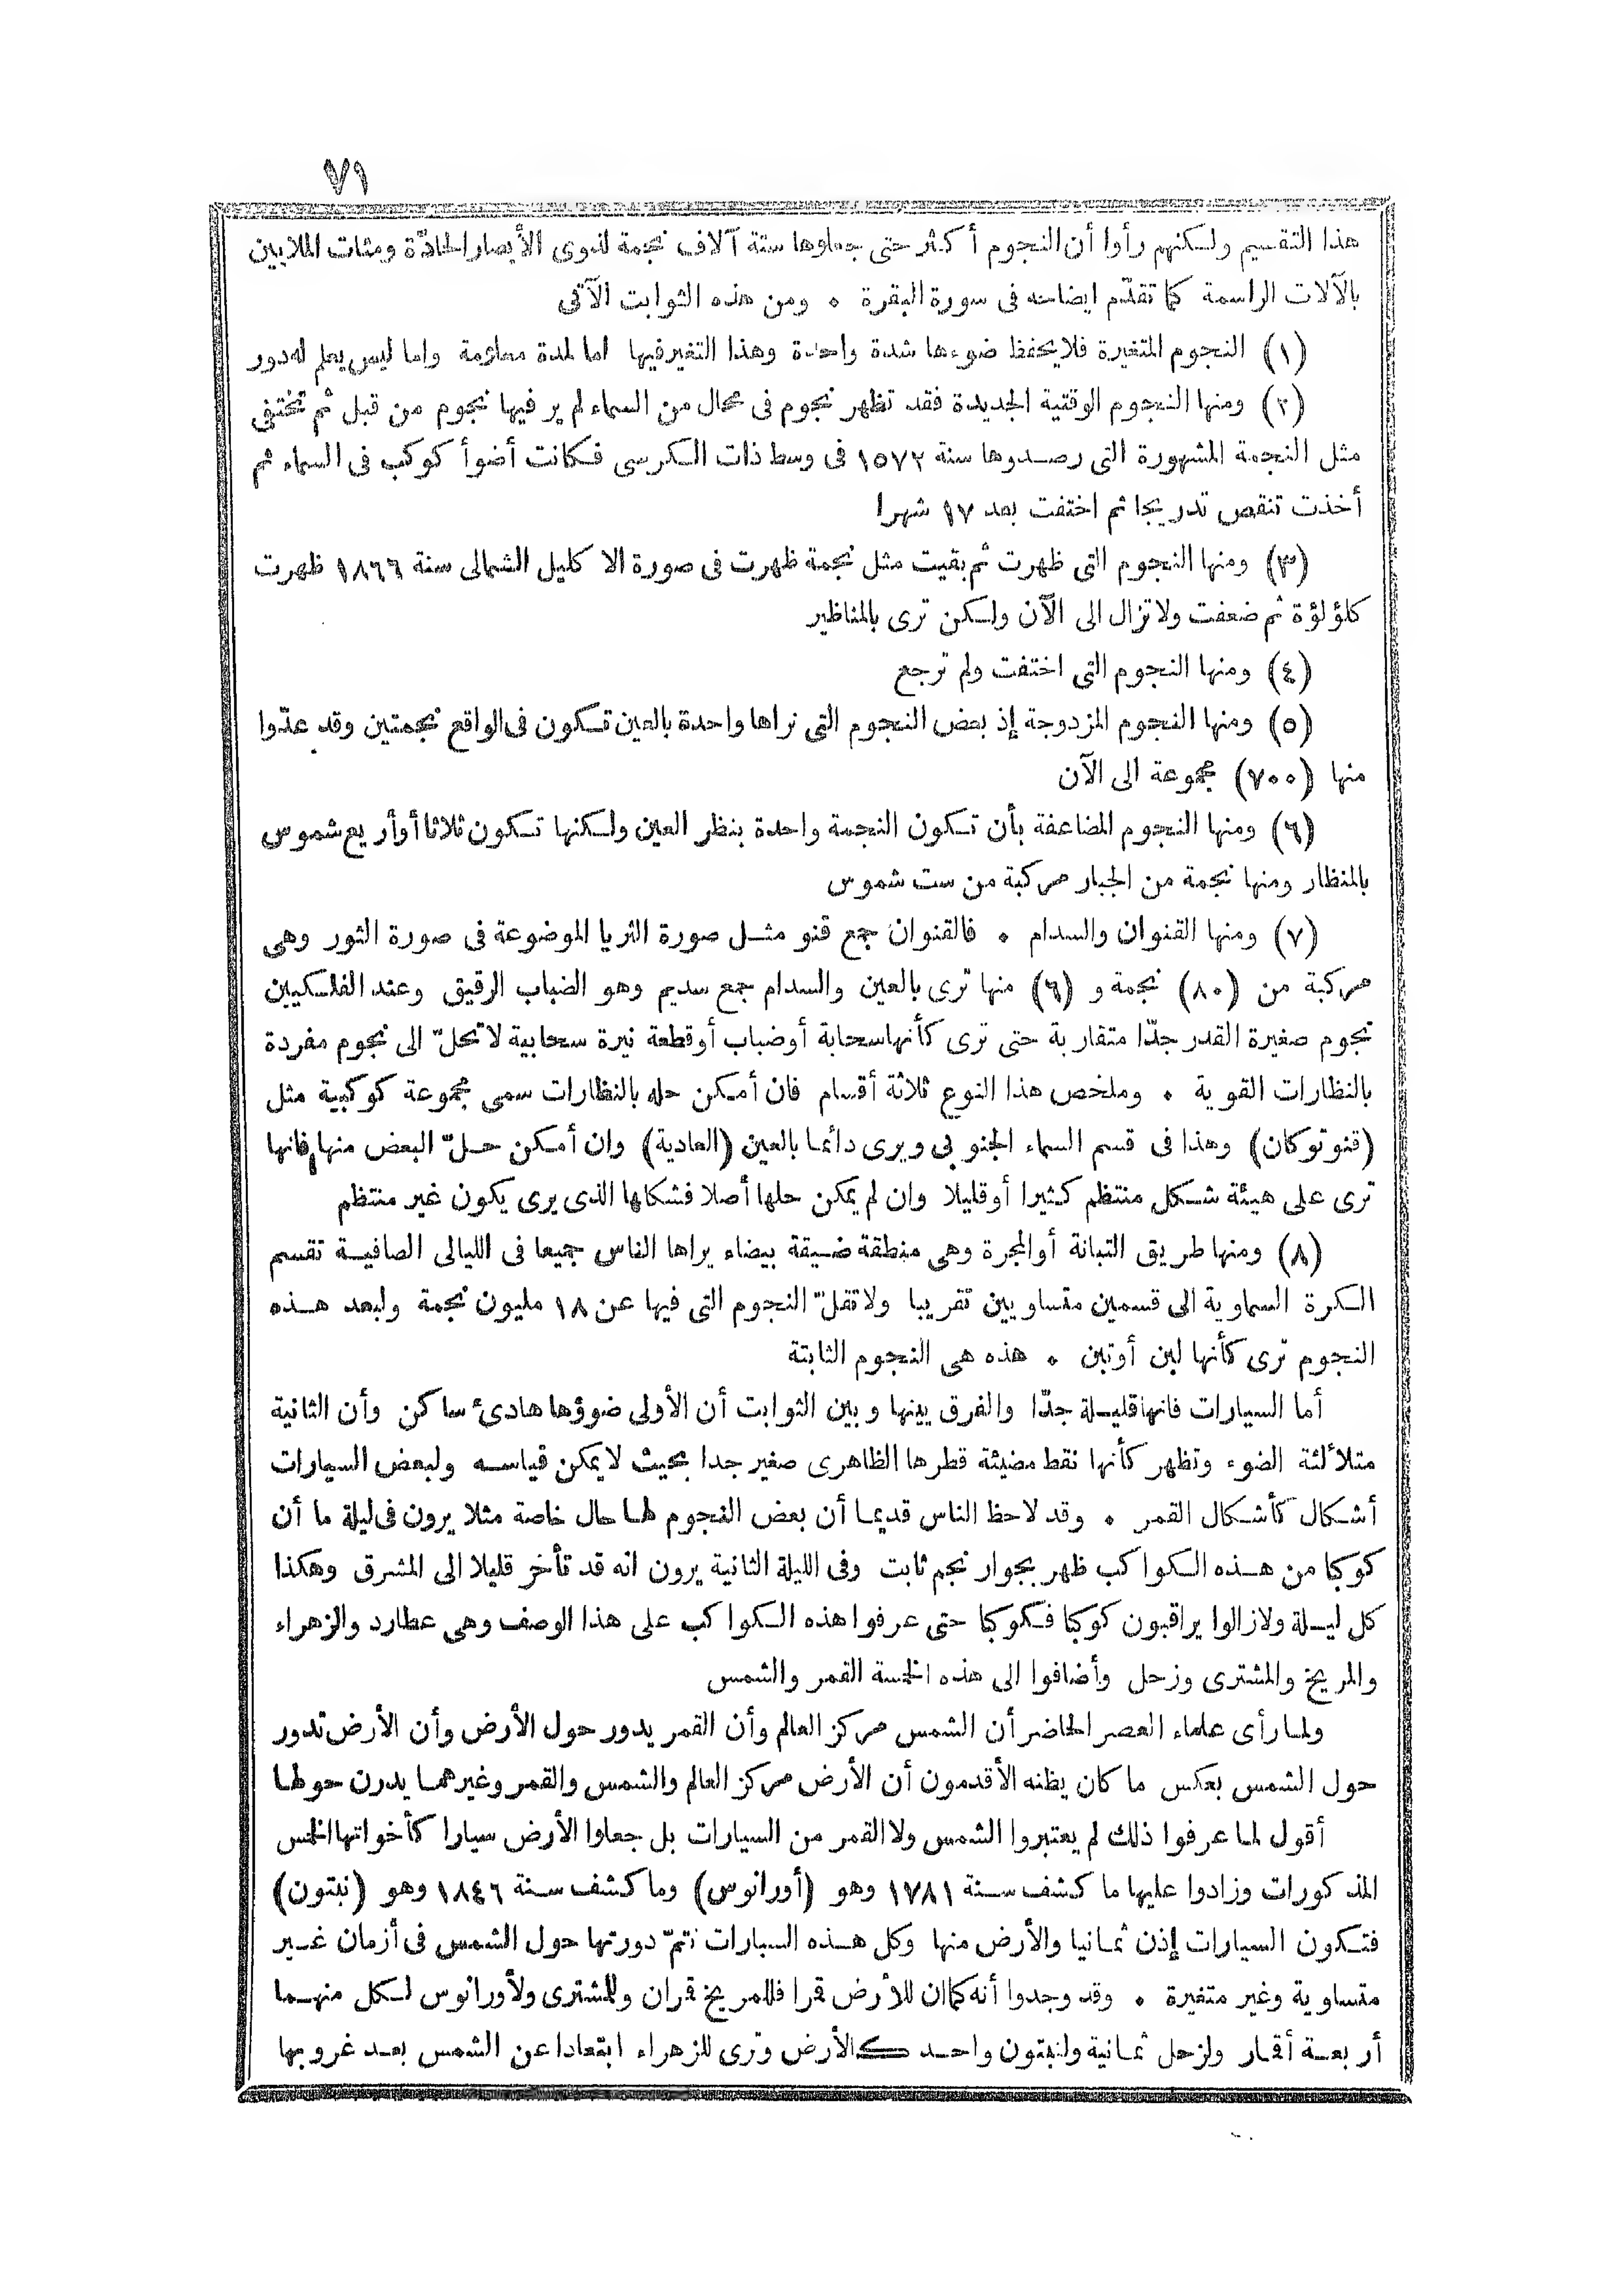 ٧١
هذا التقسيم ولكنهم رأوا أن النجوم أكثر حتى جعلوها ستة آلاف نجمة لذوى الأبصار الحادّة ومئات الملايين
بالآلات الراسمة كما تقدّم ايضاحه فى سورة البقرة ٠ ومن هذه الثوابت الآتى
(١) النجوم المتغيرة فلا يحفظ ضوءها شدة واحدة وهذا التغير فيها اما لمدة معلومة واما ليس يعلم له دور
(٢) ومنها النجوم الوقتية الجديدة فقد تظهر نجوم فى محال من السماء لم ير فيها نجوم من قبل ثم تختفى
مثل النجمة المشهورة التى رصدوها سنة ١٥٧٢ فى وسط ذات الكرسى فكانت أضوأ كوكب فى السماء ثم
أخذت تنقص تدريجا ثم اختفت بعد ١٧ شهرا
(٣) ومنها النجوم التى ظهرت ثم بقيت مثل نجمة ظهرت فى صورة الاكليل الشمالى سنة ١٨٦٦ ظهرت
كلؤلؤة ثم ضعفت ولا تزال الى الآن ولكن ترى بالمناظير
(٤) ومنها النجوم التى اختفت ولم ترجع
(٥) ومنها النجوم المزدوجة إذ بعض النجوم التى نراها واحدة بالعين تكون فى الواقع نجمتين وقد عدّوا
منها (٧٠٠) مجموعة الى الآن
(٦) ومنها النجوم المضاعفة بأن تكون النجمة واحدة بنظر العين ولكنها تكون ثلاثا أو أربع شموس
بالمنظار ومنها نجمة من الجبار مركبة من ست شموس
(٧) ومنها القنوان والسدام ٠ فالقنوان جمع قنو مثل صورة الثريا الموضوعة فى صورة الثور وهى
مركبة من (٨٠) نجمة و (٦) منها ترى بالعين والسدام جمع سديم وهو الضباب الرقيق وعند الفلكيين
نجوم صغيرة القدر جدّا متقاربة حتى ترى كأنها سحابة أو ضباب أو قطعة نيرة سحابية لا تحلّ الى نجوم مفردة
بالنظارات القوية ٠ وملخص هذا النوع ثلاثة أقسام فان أمكن حله بالنظارات سمى مجموعة كوكبية مثل
(قنو توكان) وهذا فى قسم السماء الجنوبى ويرى دائما بالعين (العادية) وان أمكن حلّ البعض منها فانها
ترى على هيئة شكل منتظم كثيرا أو قليلا وان لم يمكن حلها أصلا فشكلها الذى يرى يكون غير منتظم
(٨) ومنها طريق التبانة أو المجرة وهى منطقة ضيقة بيضاء يراها الناس جميعا فى الليالى الصافية تقسم
الكرة السماوية الى قسمين متساويين تقريبا ولا تقلّ النجوم التى فيها عن ١٨ مليون نجمة ولبعد هذه
النجوم ترى كأنها لبن أو تبن ٠ هذه هى النجوم الثابتة
أما السيارات فانها قليلة جدّا والفرق بينها وبين الثوابت أن الأولى ضوؤها هادئ ساكن وأن الثانية
متلألئة الضوء وتظهر كأنها نقط مضيئة قطرها الظاهرى صغير جدا بحيث لا يمكن قياسه ولبعض السيارات
أشكال كأشكال القمر ٠ وقد لاحظ الناس قديما أن بعض النجوم لها حال خاصة مثلا يرون فى ليلة ما أن
كوكبا من هذه الكواكب ظهر بجوار نجم ثابت وفى الليلة الثانية يرون انه قد تأخر قليلا الى المشرق وهكذا
كل ليلة ولا زالوا يراقبون كوكبا فكوكبا حتى عرفوا هذه الكواكب على هذا الوصف وهى عطارد والزهراء
والمريخ والمشترى وزحل وأضافوا الى هذه الخمسة القمر والشمس
ولما رأى علماء العصر الحاضر أن الشمس مركز العالم وأن القمر يدور حول الأرض وأن الأرض تدور
حول الشمس بعكس ما كان يظنه الأقدمون أن الأرض مركز العالم والشمس والقمر وغيرهما يدرن حولها
أقول لما عرفوا ذلك لم يعتبروا الشمس ولا القمر من السيارات بل جعلوا الأرض سيارا كأخواتها الخمس
المذكورات وزادوا عليها ما كشف سنة ١٧٨١ وهو (أورانوس) وما كشف سنة ١٨٤٦ وهو (نبتون)
فتكون السيارات إذن ثمانيا والأرض منها وكل هذه السيارات تتمّ دورتها حول الشمس فى أزمان غير
متساوية وغير متغيرة ٠ وقد وجدوا أنه كما ان للأرض قمرا فللمريخ قمران وللمشترى ولأورانوس لكل منهما
أربعة أقمار ولزحل ثمانية ولنبتون واحد كالأرض وترى للزهراء ابتعادا عن الشمس بعد غروبها